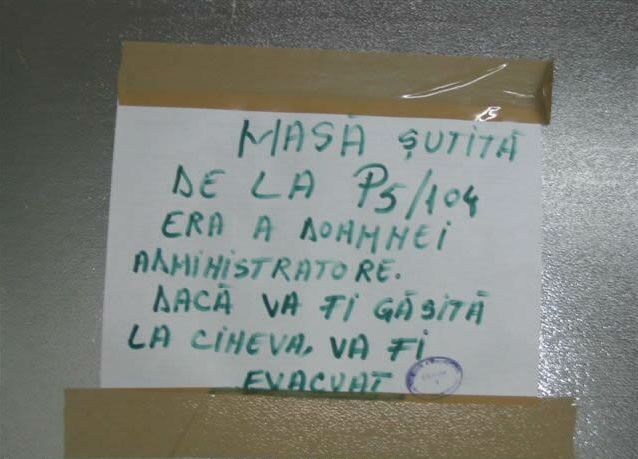 MASĂ ȘUTITĂ
DE LA P5/104
ERA A DOAMNEI
ADMINISTRATORE.
DACĂ VA FI GĂSITĂ
LA CINEVA, VA FI
EVACUAT